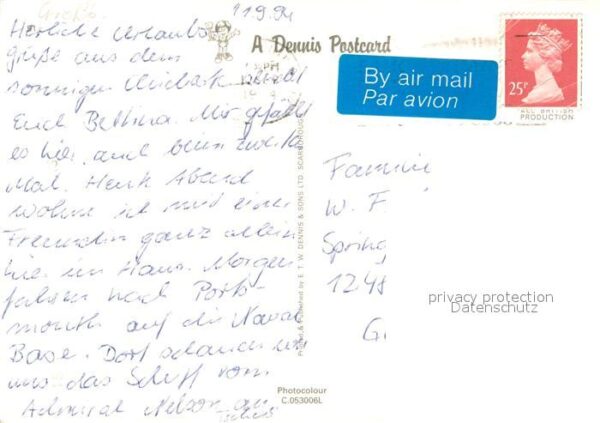 11.9.94
Herzliche Urlaubs-
grüße aus dem
sonnigen
Euch Bettina. Mir gefällt
es hier auch beim zweiten
Mal. Heute Abend
wohne ich mit einer
Freundin ganz allein
hier im Haus. Morgen
fahren nach Ports-
mouth auf die Naval
Base. Dort schauen wir
uns das Schiff vom
Admiral Nelson an
A Dennis Postcard
By air mail
Par avion
25P
ALL BRITISH
PRODUCTION
Familie
W. F
Spring
1248
G
privacy protection
Datenschutz
Printed & Published by E. T. W. DENNIS & SONS LTD. SCARBOROUGH
Photocolour
C.053006L